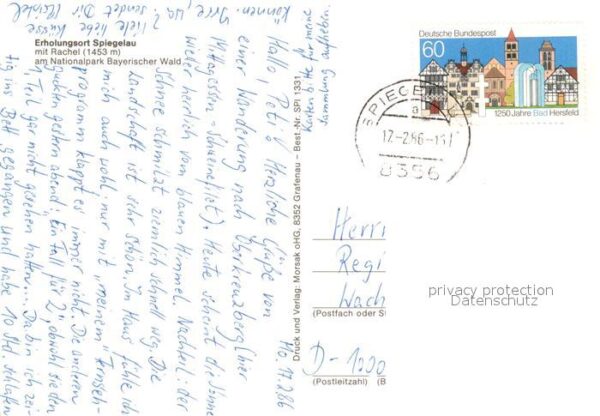 Erholungsort Spiegelau
mit Rachel (1453 m)
am Nationalpark Bayerischer Wald
Mo. 17.2.86
Hallo, Petra! Herzliche Grüße von
einer Wanderung nach Oberkreuzberg (hier
Mittagessen-Sonnenfrist). Heute scheint die Sonne
wieder herrlich vom blauen Himmel. Nachteil: der
Schnee schmilzt ziemlich schnell weg. Die
Landschaft ist sehr schön. Im Haus fühle ich
mich auch wohl; nur mit "meinem" Fernseh-
programm klappt es immer nicht. Die anderen
guckten gestern abend "Ein Fall für 2", obwohl sie den
1. Teil gar nicht gesehen hatten... Da bin ich zei-
tig ins Bett gegangen und habe 10 Std. schlafen
können. Irre, wa?
Viele liebe Küsse
sendet Dir
Karten bitte für meine
Sammlung aufheben.
Druck und Verlag: Morsak oHG, 8352 Grafenau – Best.-Nr. SPI 1331
Deutsche Bundespost
60
1250 Jahre Bad Hersfeld
SPIEGEL
a
17.-2.86-15
8356
Herrn
Regi
Wach
(Postfach oder St
D-1000
(Postleitzahl) (B
privacy protection
Datenschutz